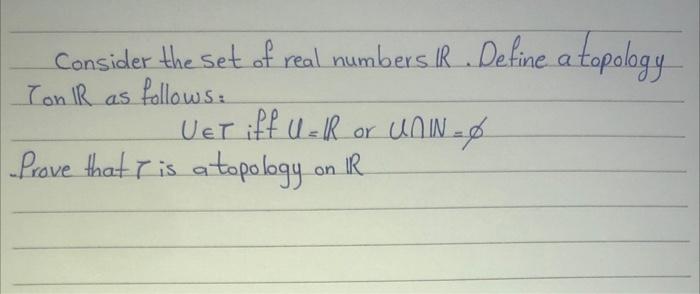 Consider the set of real numbers ℝ. Define a topology
τ on ℝ as follows:
U∈τ iff U=ℝ or U∩ℕ=∅
-Prove that τ is a topology on ℝ